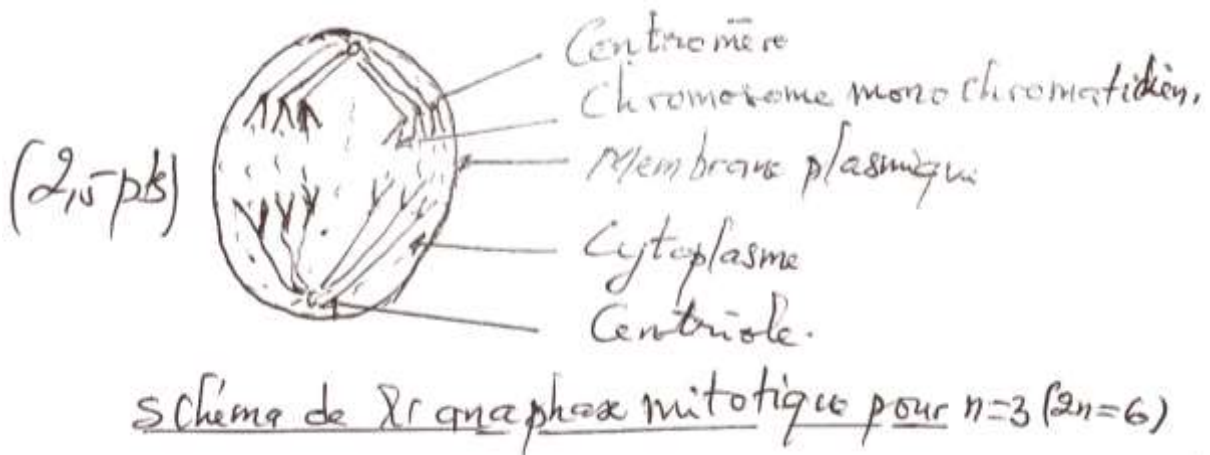 Centromère
Chromosome monochromatidien.
(2,5 pts)
Membrane plasmique
Cytoplasme
Centriole.
Schéma de l'anaphase mitotique pour n=3 (2n=6)